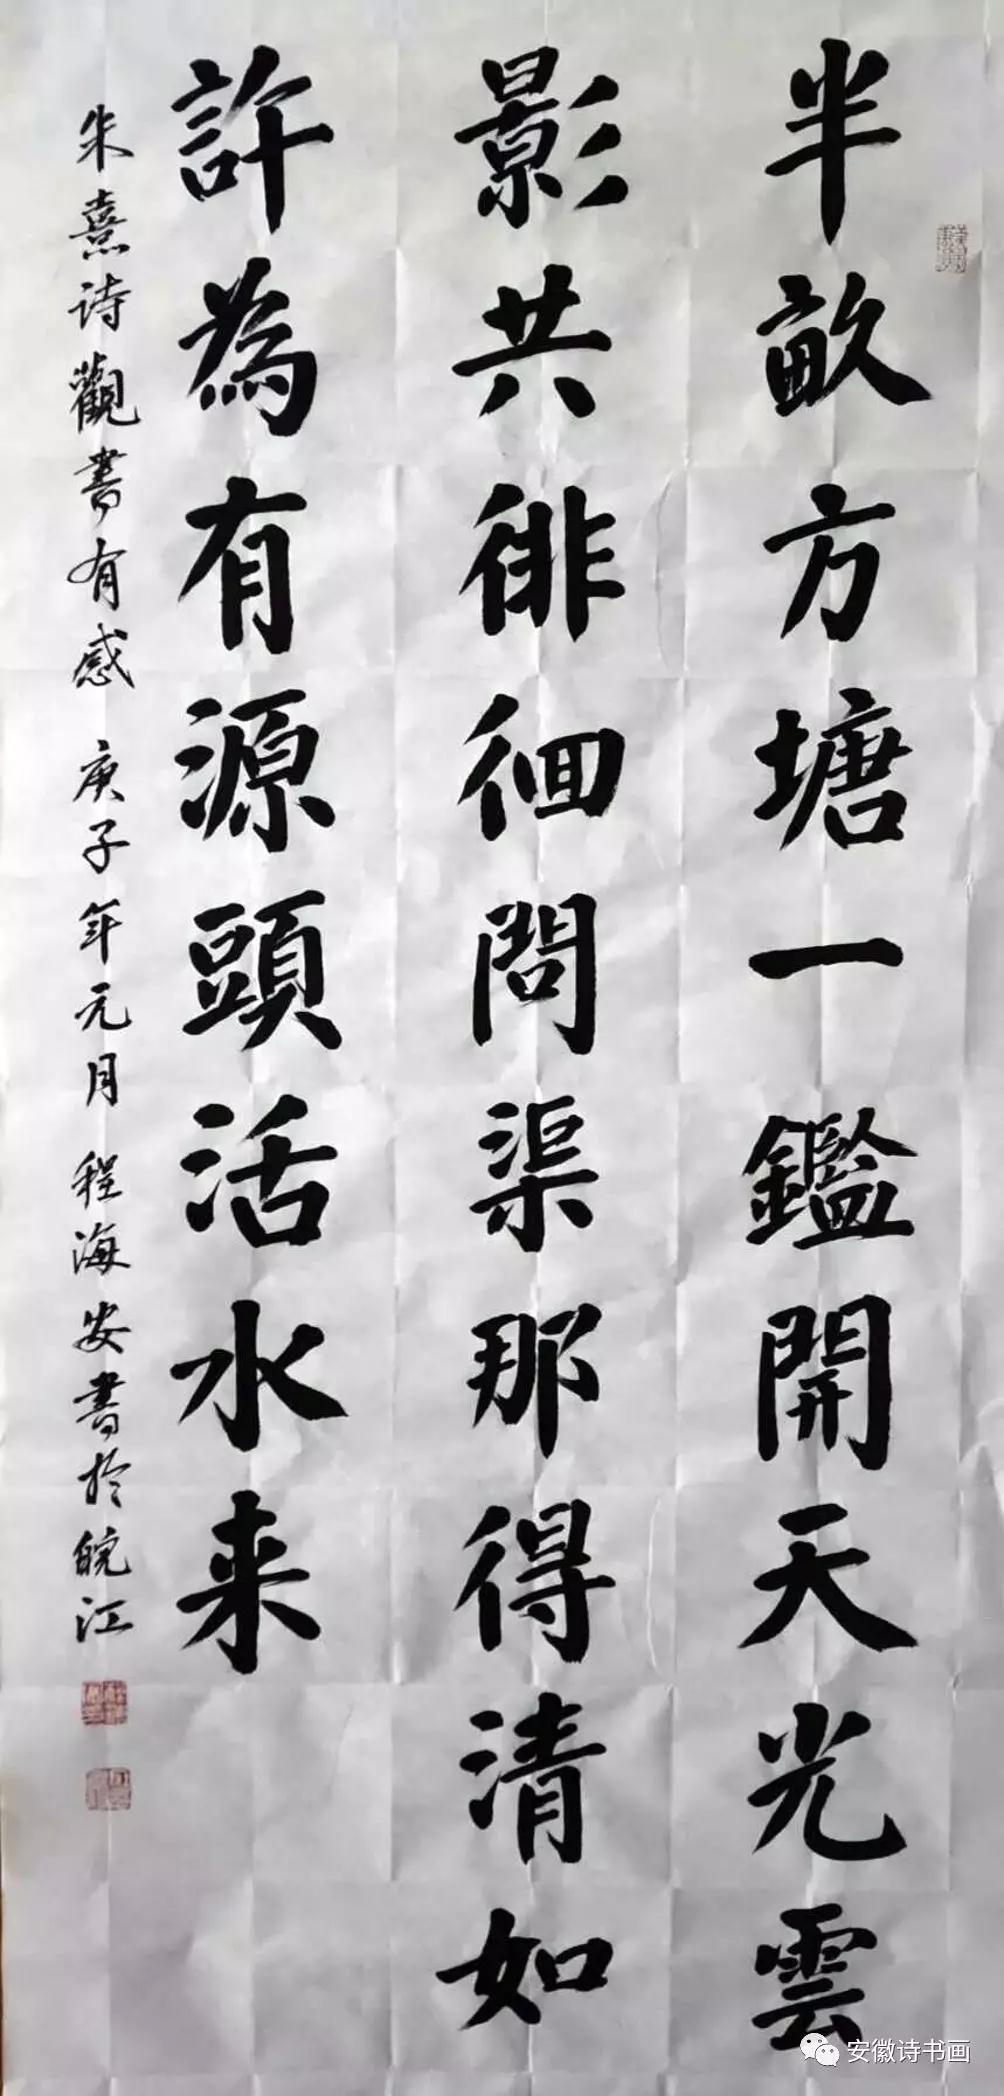 半畝方塘一鑑開天光雲
影共徘徊問渠那得清如
許為有源頭活水来
朱熹诗觀書有感 庚子年元月 程海安書於皖江
安徽诗书画